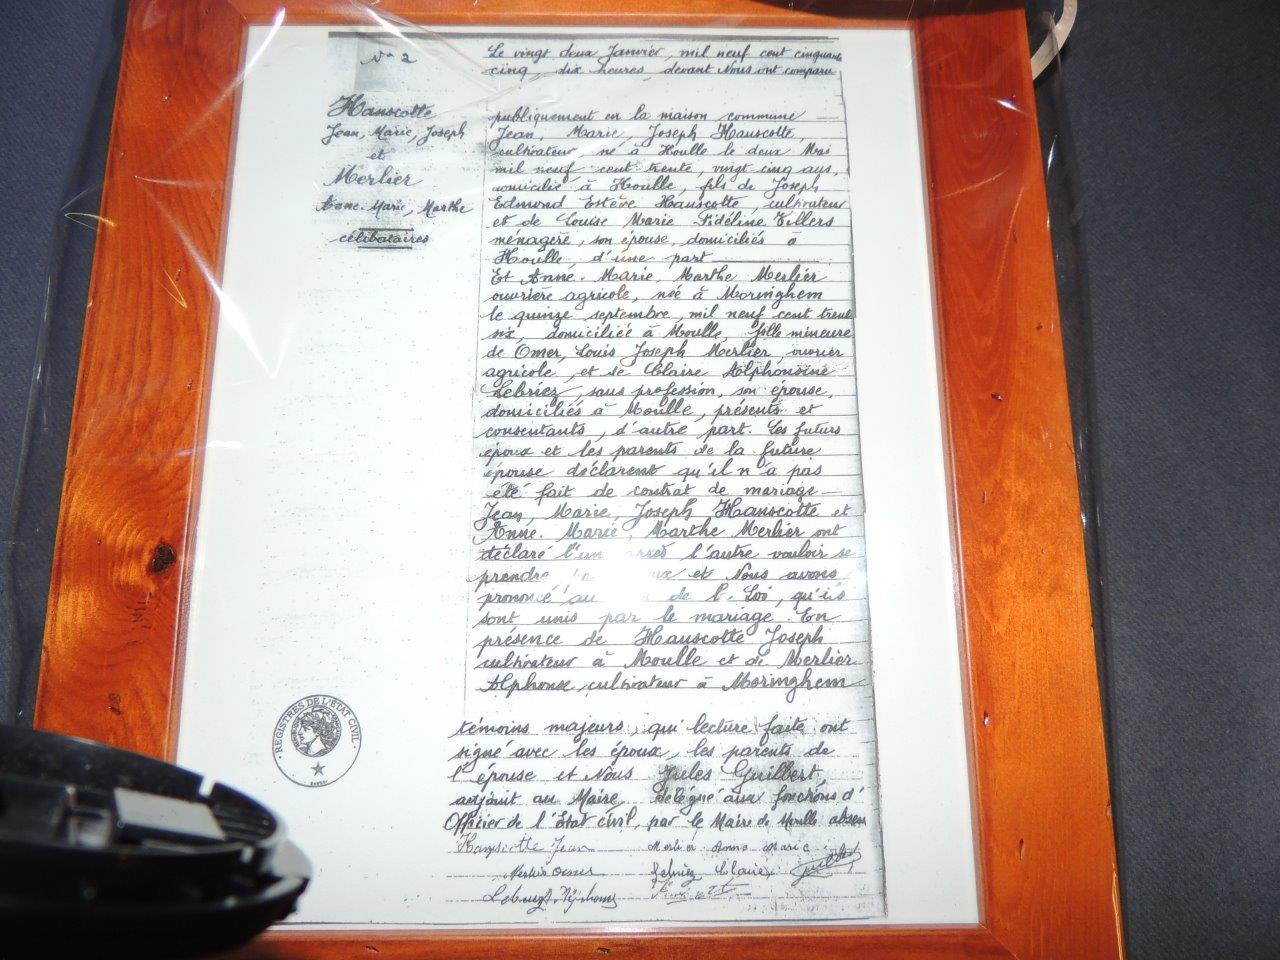 N° 2
Hauscotte
Jean, Marie, Joseph
et
Merlier
Anne. Marie, Marthe
célibataires
Le vingt deux Janvier, mil neuf cent cinquante
cinq, dix heures, devant Nous ont comparu
publiquement en la maison commune
Jean, Marie, Joseph Hauscotte,
cultivateur, né à Houlle le deux Mai
mil neuf cent trente, vingt cinq ans,
domicilié à Houlle, fils de Joseph
Edmond Estève Hauscotte, cultivateur
et de Louise Marie Fidéline Villers
ménagère, son épouse, domiciliés à
Houlle, d'une part
Et Anne. Marie, Marthe Merlier
ouvrière agricole, née à Moringhem
le quinze septembre, mil neuf cent trente
six, domiciliée à Moulle, fille mineure
de Omer, Louis Joseph Merlier, ouvrier
agricole, et de Claire Alphonsine
Lebriez, sans profession, son épouse,
domiciliés à Moulle, présents et
consentants, d'autre part. Les futurs
époux et les parents de la future
épouse déclarent qu'il n'a pas
été fait de contrat de mariage
Jean, Marie, Joseph Hauscotte et
Anne. Marie, Marthe Merlier ont
déclaré l'un après l'autre vouloir se
prendre et Nous avons
prononcé au de la Loi, qu'ils
sont unis par le mariage. En
présence de Hauscotte Joseph
cultivateur à Moulle et de Merlier
Alphonse, cultivateur à Moringhem
témoins majeurs, qui lecture faite ont
signé avec les époux, les parents de
l'épouse et Nous Jules Guilbert,
adjoint au Maire, délégué aux fonctions d'
Officier de l'État civil, par le Maire de Moulle absent
Hauscotte Jean Merlier Anne Marie
Merlier Omer Lebriez Claire Guilbert
REGISTRES DE L'ETAT CIVIL